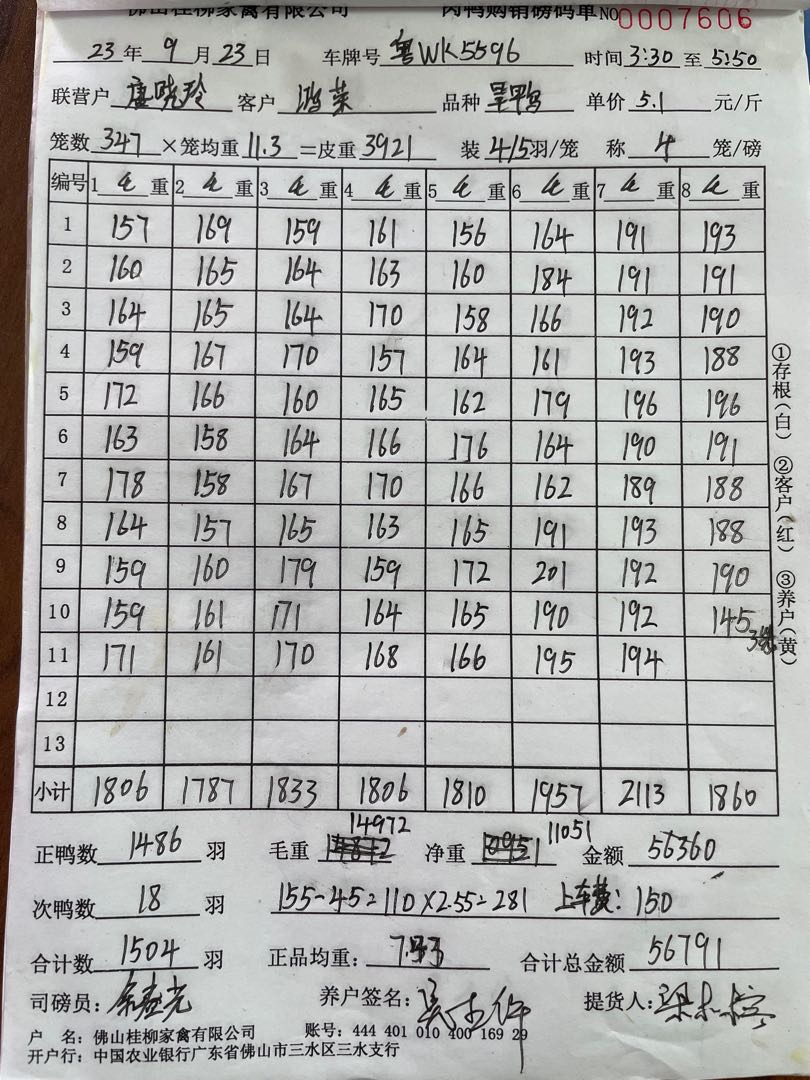 佛山桂柳家禽有限公司 肉鸭购销磅码单 NO 0007606
23年9月23日 车牌号 粤WK5596 时间 3:30 至 5:50
联营户 唐晓玲 客户 鸿荣 品种 旱鸭 单价 5.1 元/斤
笼数 347 ×笼均重 11.3 =皮重 3921 装 4/5 羽/笼 称 4 笼/磅
编号 1 毛 重 2 毛 重 3 毛 重 4 毛 重 5 毛 重 6 毛 重 7 毛 重 8 毛 重
1 157 169 159 161 156 164 191 193
2 160 165 164 163 160 184 191 191
3 164 165 164 170 158 166 192 190
4 159 167 170 157 164 161 193 188
5 172 166 160 165 162 179 196 196
6 163 158 164 166 176 164 190 191
7 178 158 167 170 166 162 189 188
8 164 157 165 163 165 191 193 188
9 159 160 179 159 172 201 192 190
10 159 161 171 164 165 190 192 145
11 171 161 170 168 166 195 194
12
13
小计 1806 1787 1833 1806 1810 1957 2113 1860
正鸭数 1486 羽 毛重 14972 净重 11051 金额 56360
次鸭数 18 羽 155-45=110×2.55=281 上车费：150
合计数 1504 羽 正品均重： 合计总金额 56791
司磅员： 养户签名： 提货人：
户 名：佛山桂柳家禽有限公司 账号：444 401 010 400 169 29
开户行：中国农业银行广东省佛山市三水区三水支行
①存根（白） ②客户（红） ③养户（黄）